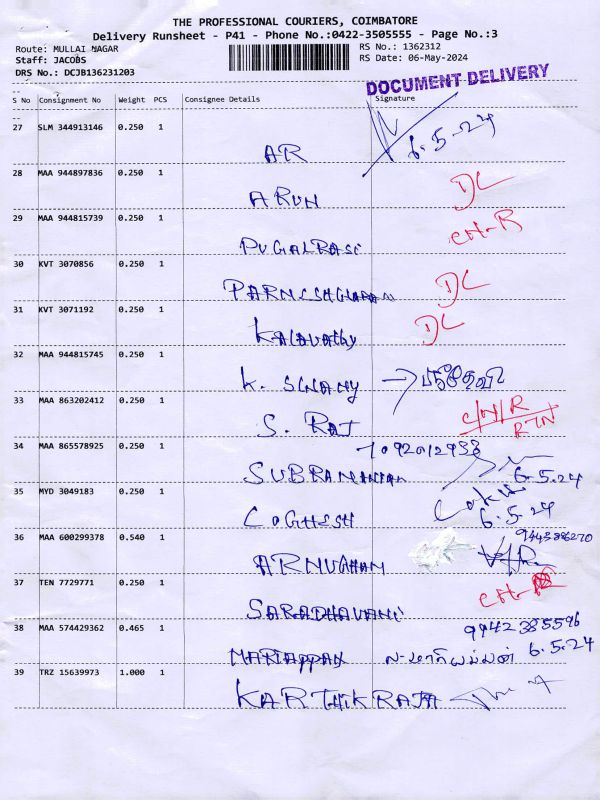 THE PROFESSIONAL COURIERS, COIMBATORE
Delivery Runsheet - P41 - Phone No.:0422-3505555 - Page No.:3
Route: MULLAI NAGAR
Staff: JACOBS
DRS No.: DCJB136231203
RS No.: 1362312
RS Date: 06-May-2024
DOCUMENT DELIVERY
S No Consignment No Weight PCS Consignee Details Signature
27 SLM 344913146 0.250 1
AR 6.5.24
28 MAA 944897836 0.250 1
ARUN DL
29 MAA 944815739 0.250 1
PUGALRASI
30 KVT 3070856 0.250 1
DL
31 KVT 3071192 0.250 1
Kalavathy DL
32 MAA 944815745 0.250 1
K. SWAMY
33 MAA 863202412 0.250 1
S. RAJ C/N/R
RTN
34 MAA 865578925 0.250 1
SUBRAMANIAN 6.5.24
35 MYD 3049183 0.250 1
6.5.24
36 MAA 600299378 0.540 1
37 TEN 7729771 0.250 1
38 MAA 574429362 0.465 1
9942385596
MARIAPPAN 6.5.24
39 TRZ 15639973 1.000 1
KARTHIK RAJA